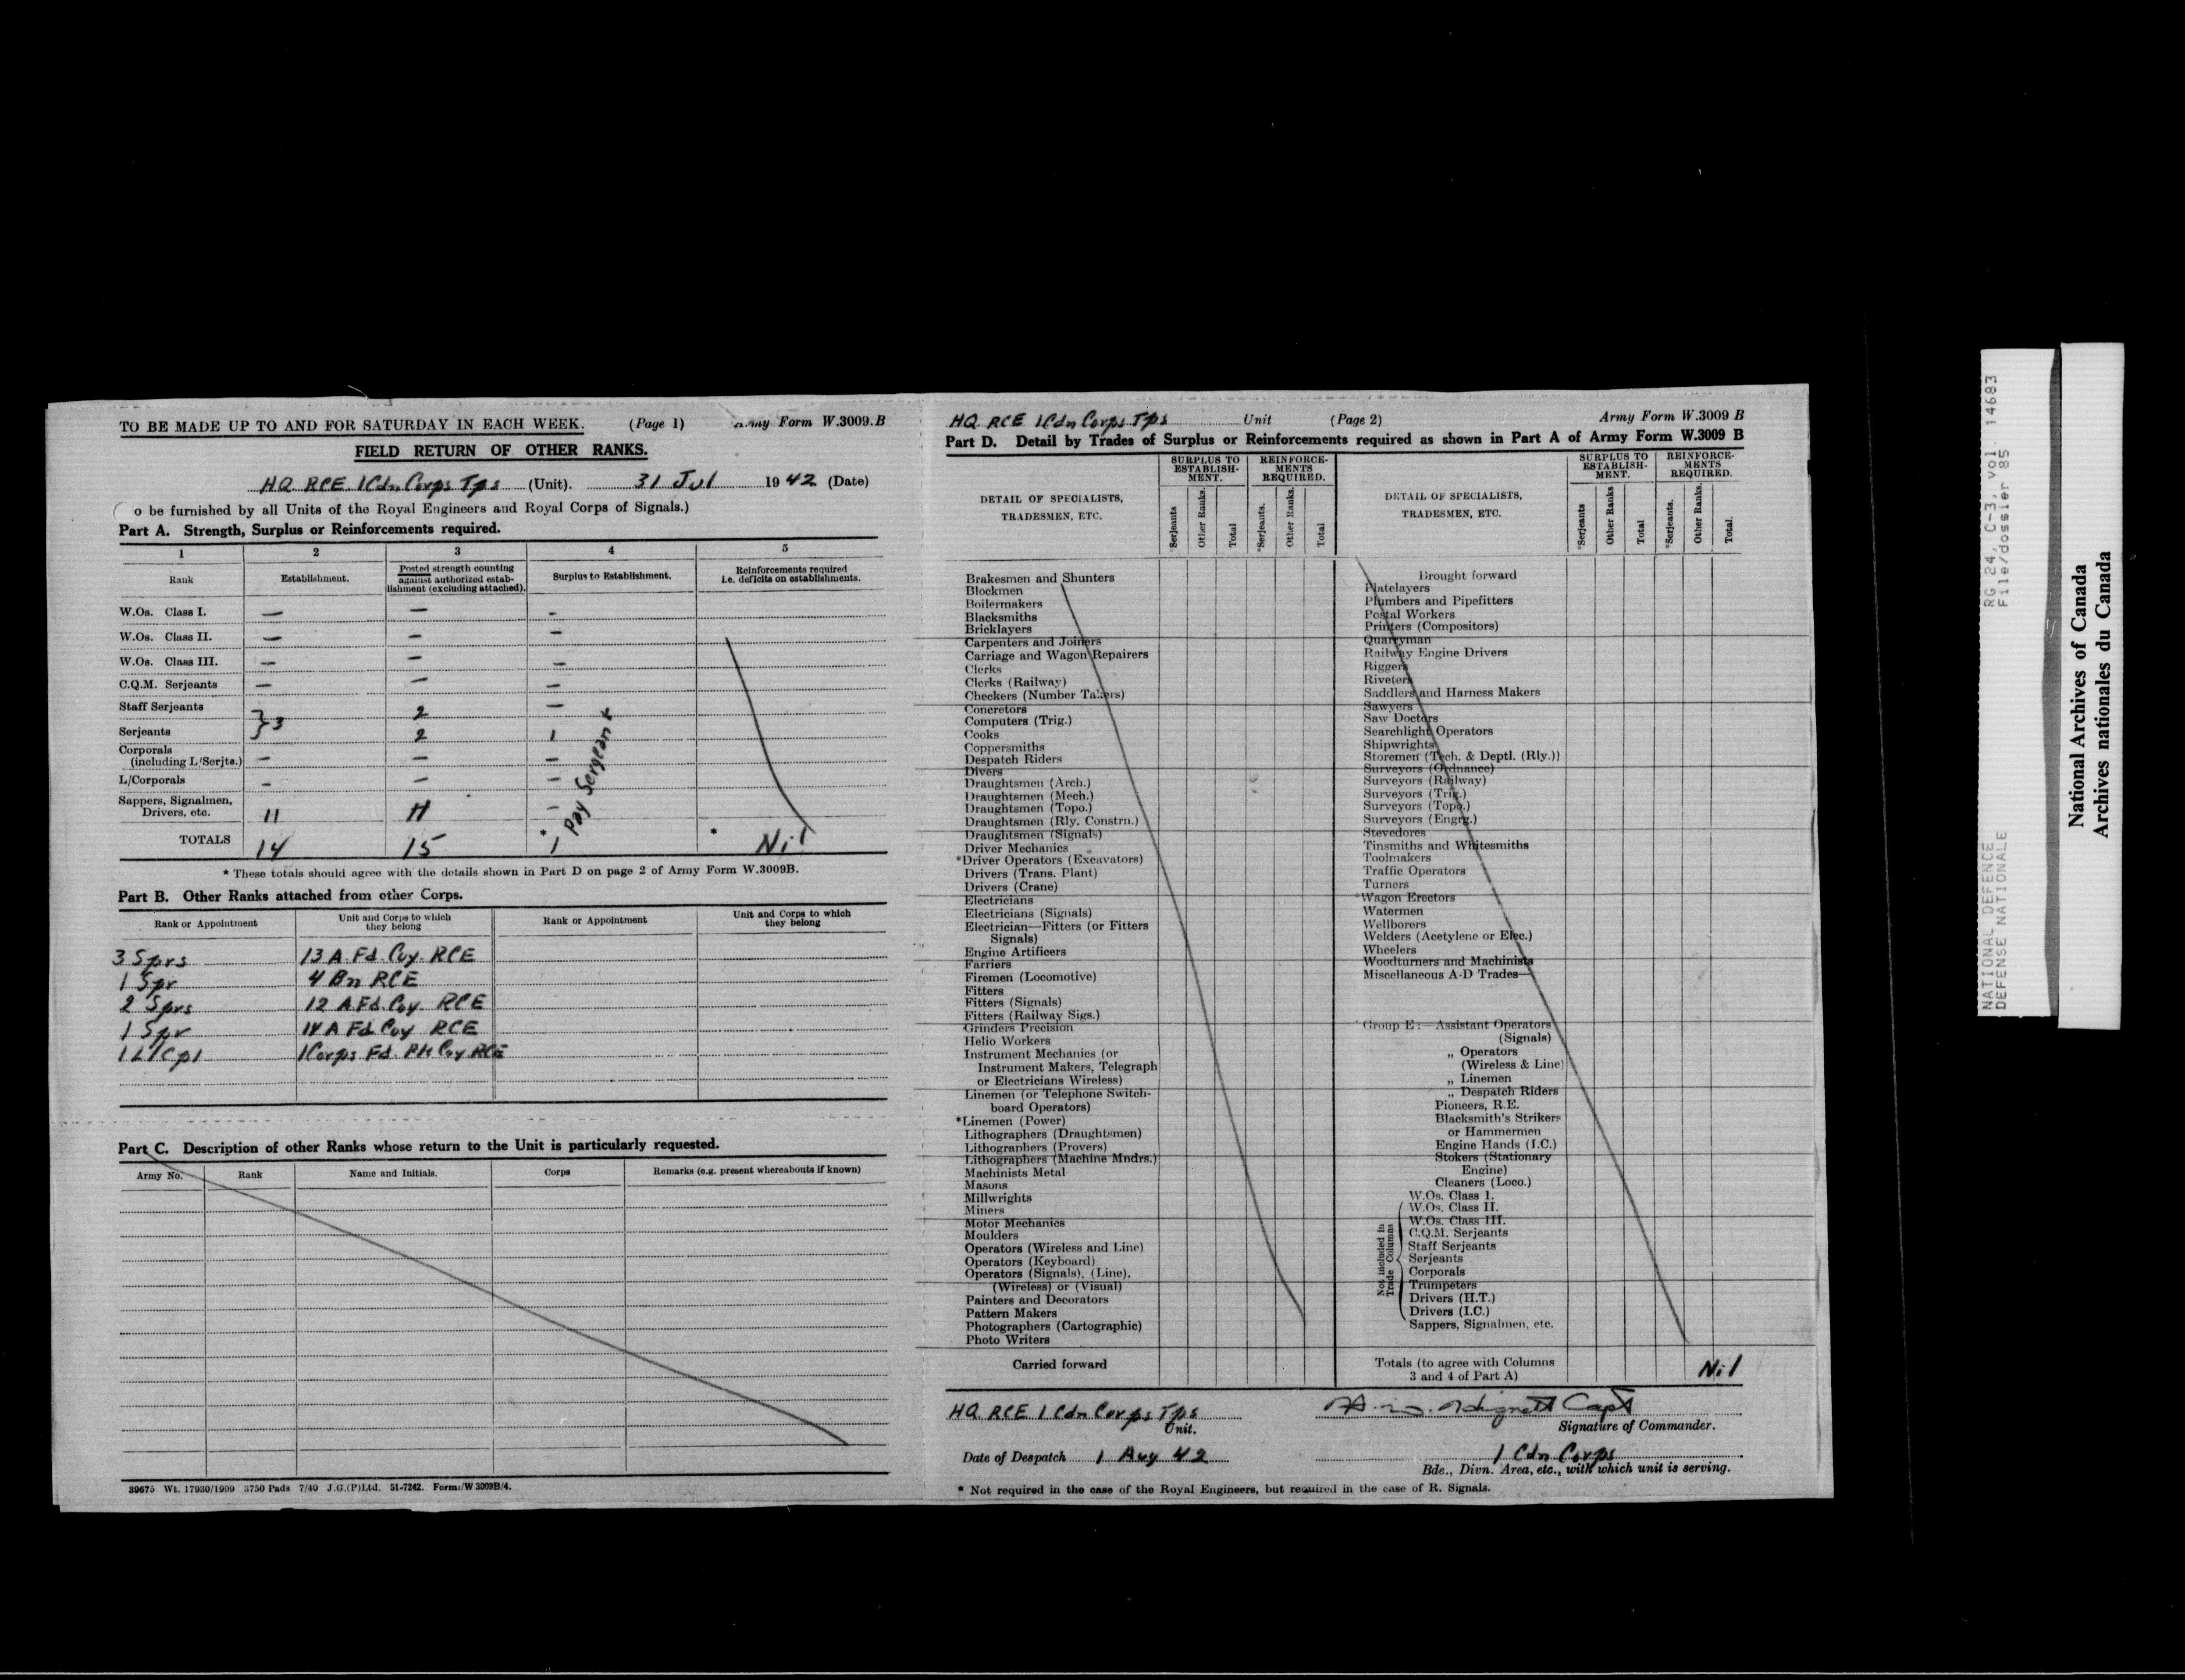 TO BE MADE UP TO AND FOR SATURDAY IN EACH WEEK. (Page 1) Army Form W.3009.B
FIELD RETURN OF OTHER RANKS.
HQ RCE 1 Cdn Corps Tps (Unit). 31 Jul 1942 (Date)
(To be furnished by all Units of the Royal Engineers and Royal Corps of Signals.)
Part A. Strength, Surplus or Reinforcements required.
1 2 3 4 5
Rank Establishment. Posted strength counting against authorized establishment (excluding attached). Surplus to Establishment. Reinforcements required i.e. deficits on establishments.
W.Os. Class I. — — -
W.Os. Class II. — — —
W.Os. Class III. — — —
C.Q.M. Serjeants — — —
Staff Serjeants } 3 2 —
Serjeants 2 1
Corporals
(including L/Serjts.) — — —
L/Corporals — — —
Sappers, Signalmen,
Drivers, etc. 11 11 —
Pay Sergeant
TOTALS 14 15 * 1 * Nil
* These totals should agree with the details shown in Part D on page 2 of Army Form W.3009B.
Part B. Other Ranks attached from other Corps.
Rank or Appointment Unit and Corps to which they belong Rank or Appointment Unit and Corps to which they belong
3 Sprs 13 A. Fd. Coy. RCE
1 Spr 4 Bn RCE
2 Sprs 12 A. Fd. Coy. RCE
1 Spr 14 A Fd Coy RCE
1 L/Cpl 1 Corps Fd. Pk Coy RCE
Part C. Description of other Ranks whose return to the Unit is particularly requested.
Army No. Rank Name and Initials. Corps Remarks (e.g. present whereabouts if known)
39675 Wt. 17930/1909 3750 Pads 7/40 J.G.(P)Ltd. 51-7242. Forms/W 3009B/4.
HQ RCE 1 Cdn Corps Tps Unit (Page 2) Army Form W.3009 B
Part D. Detail by Trades of Surplus or Reinforcements required as shown in Part A of Army Form W.3009 B
DETAIL OF SPECIALISTS, TRADESMEN, ETC. SURPLUS TO ESTABLISHMENT. REINFORCEMENTS REQUIRED.
*Serjeants Other Ranks. Total *Serjeants. Other Ranks. Total
Brakesmen and Shunters
Blockmen
Boilermakers
Blacksmiths
Bricklayers
Carpenters and Joiners
Carriage and Wagon Repairers
Clerks
Clerks (Railway)
Checkers (Number Takers)
Concretors
Computers (Trig.)
Cooks
Coppersmiths
Despatch Riders
Divers
Draughtsmen (Arch.)
Draughtsmen (Mech.)
Draughtsmen (Topo.)
Draughtsmen (Rly. Constrn.)
Draughtsmen (Signals)
Driver Mechanics
*Driver Operators (Excavators)
Drivers (Trans. Plant)
Drivers (Crane)
Electricians
Electricians (Signals)
Electrician—Fitters (or Fitters
Signals)
Engine Artificers
Farriers
Firemen (Locomotive)
Fitters
Fitters (Signals)
Fitters (Railway Sigs.)
Grinders Precision
Helio Workers
Instrument Mechanics (or
Instrument Makers, Telegraph
or Electricians Wireless)
Linemen (or Telephone Switch-
board Operators)
*Linemen (Power)
Lithographers (Draughtsmen)
Lithographers (Provers)
Lithographers (Machine Mndrs.)
Machinists Metal
Masons
Millwrights
Miners
Motor Mechanics
Moulders
Operators (Wireless and Line)
Operators (Keyboard)
Operators (Signals), (Line),
(Wireless) or (Visual)
Painters and Decorators
Pattern Makers
Photographers (Cartographic)
Photo Writers
Carried forward
DETAIL OF SPECIALISTS, TRADESMEN, ETC. SURPLUS TO ESTABLISHMENT. REINFORCEMENTS REQUIRED.
*Serjeants Other Ranks Total *Serjeants. Other Ranks. Total.
Brought forward
Platelayers
Plumbers and Pipefitters
Postal Workers
Printers (Compositors)
Quarryman
Railway Engine Drivers
Riggers
Riveters
Saddlers and Harness Makers
Sawyers
Saw Doctors
Searchlight Operators
Shipwrights
Storemen (Tech. & Deptl. (Rly.))
Surveyors (Ordnance)
Surveyors (Railway)
Surveyors (Trig.)
Surveyors (Topo.)
Surveyors (Engrg.)
Stevedores
Tinsmiths and Whitesmiths
Toolmakers
Traffic Operators
Turners
*Wagon Erectors
Watermen
Wellborers
Welders (Acetylene or Elec.)
Wheelers
Woodturners and Machinists
Miscellaneous A-D Trades—
Group E:—Assistant Operators
(Signals)
„ Operators
(Wireless & Line)
„ Linemen
„ Despatch Riders
Pioneers, R.E.
Blacksmith's Strikers
or Hammermen
Engine Hands (I.C.)
Stokers (Stationary
Engine)
Cleaners (Loco.)
Not included in Trade Columns
W.Os. Class I.
W.Os. Class II.
W.Os. Class III.
C.Q.M. Serjeants
Staff Serjeants
Serjeants
Corporals
Trumpeters
Drivers (H.T.)
Drivers (I.C.)
Sappers, Signalmen, etc.
Totals (to agree with Columns
3 and 4 of Part A) Nil
HQ RCE 1 Cdn Corps Tps
Unit.
Capt
Signature of Commander.
Date of Despatch 1 Aug 42
1 Cdn Corps
Bde., Divn. Area, etc., with which unit is serving.
* Not required in the case of the Royal Engineers, but required in the case of R. Signals.
NATIONAL DEFENCE RG 24, C-3, vol. 14683
DEFENSE NATIONALE File/dossier 85
National Archives of Canada
Archives nationales du Canada